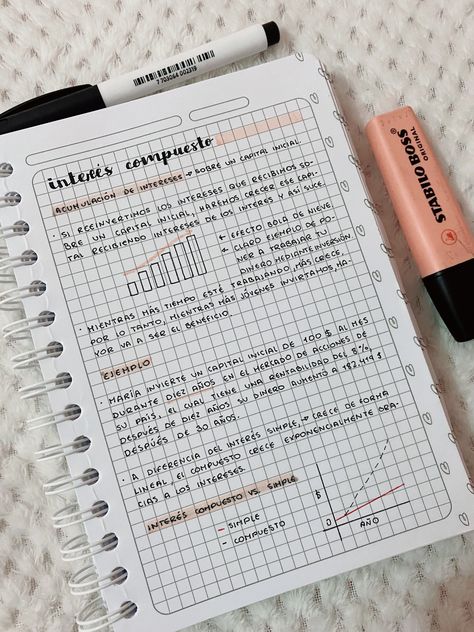 7 703064 002319
interés compuesto
ACUMULACIÓN DE INTERESES → SOBRE UN CAPITAL INICIAL
• SI REINVERTIMOS LOS INTERESES QUE RECIBIMOS SO-
BRE UN CAPITAL INICIAL, HAREMOS CRECER ESE CAPI-
TAL RECIBIENDO INTERESES DE LOS INTERÉS Y ASÍ SUCE.
← EFECTO BOLA DE NIEVE
← CLARO EJEMPLO DE PO-
NER A TRABAJAR TU
DINERO MEDIANTE INVERSIÓN
• MIENTRAS MÁS TIEMPO ESTE TRABAJANDO, MÁS CRECE,
POR LO TANTO, MIENTRAS MÁS JÓVENES INVIRTAMOS, MA-
YOR VA A SER EL BENEFICIO
EJEMPLO
• MARÍA INVIERTE UN CAPITAL INICIAL DE 100 $ AL MES
DURANTE DIEZ AÑOS EN EL MERCADO DE ACCIONES DE
SU PAÍS, EL CUAL TIENE UNA RENTABILIDAD DEL 8%,
DESPUÉS DE DIEZ AÑOS SU DINERO AUMENTÓ A 182,419 $
DESPUÉS DE 30 AÑOS.
• A DIFERENCIA DEL INTERÉS SIMPLE, → CRECE DE FORMA
LINEAL, EL COMPUESTO CRECE EXPONENCIALMENTE GRA-
CIAS A LOS INTERESES.
INTERÉS COMPUESTO VS. SIMPLE
– SIMPLE
- COMPUESTO
$
0
AÑO
STABILO BOSS
ORIGINAL